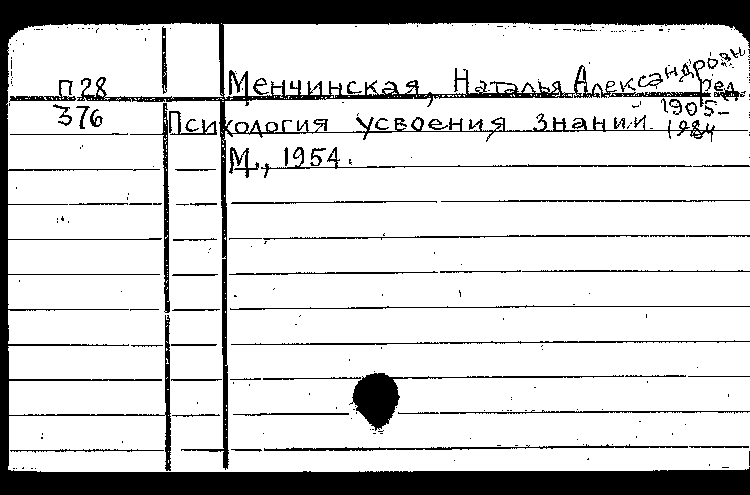 П28 Менчинская, Наталья Александровн ред.
376 Психология усвоения знаний. 1905-
1984
М., 1954.